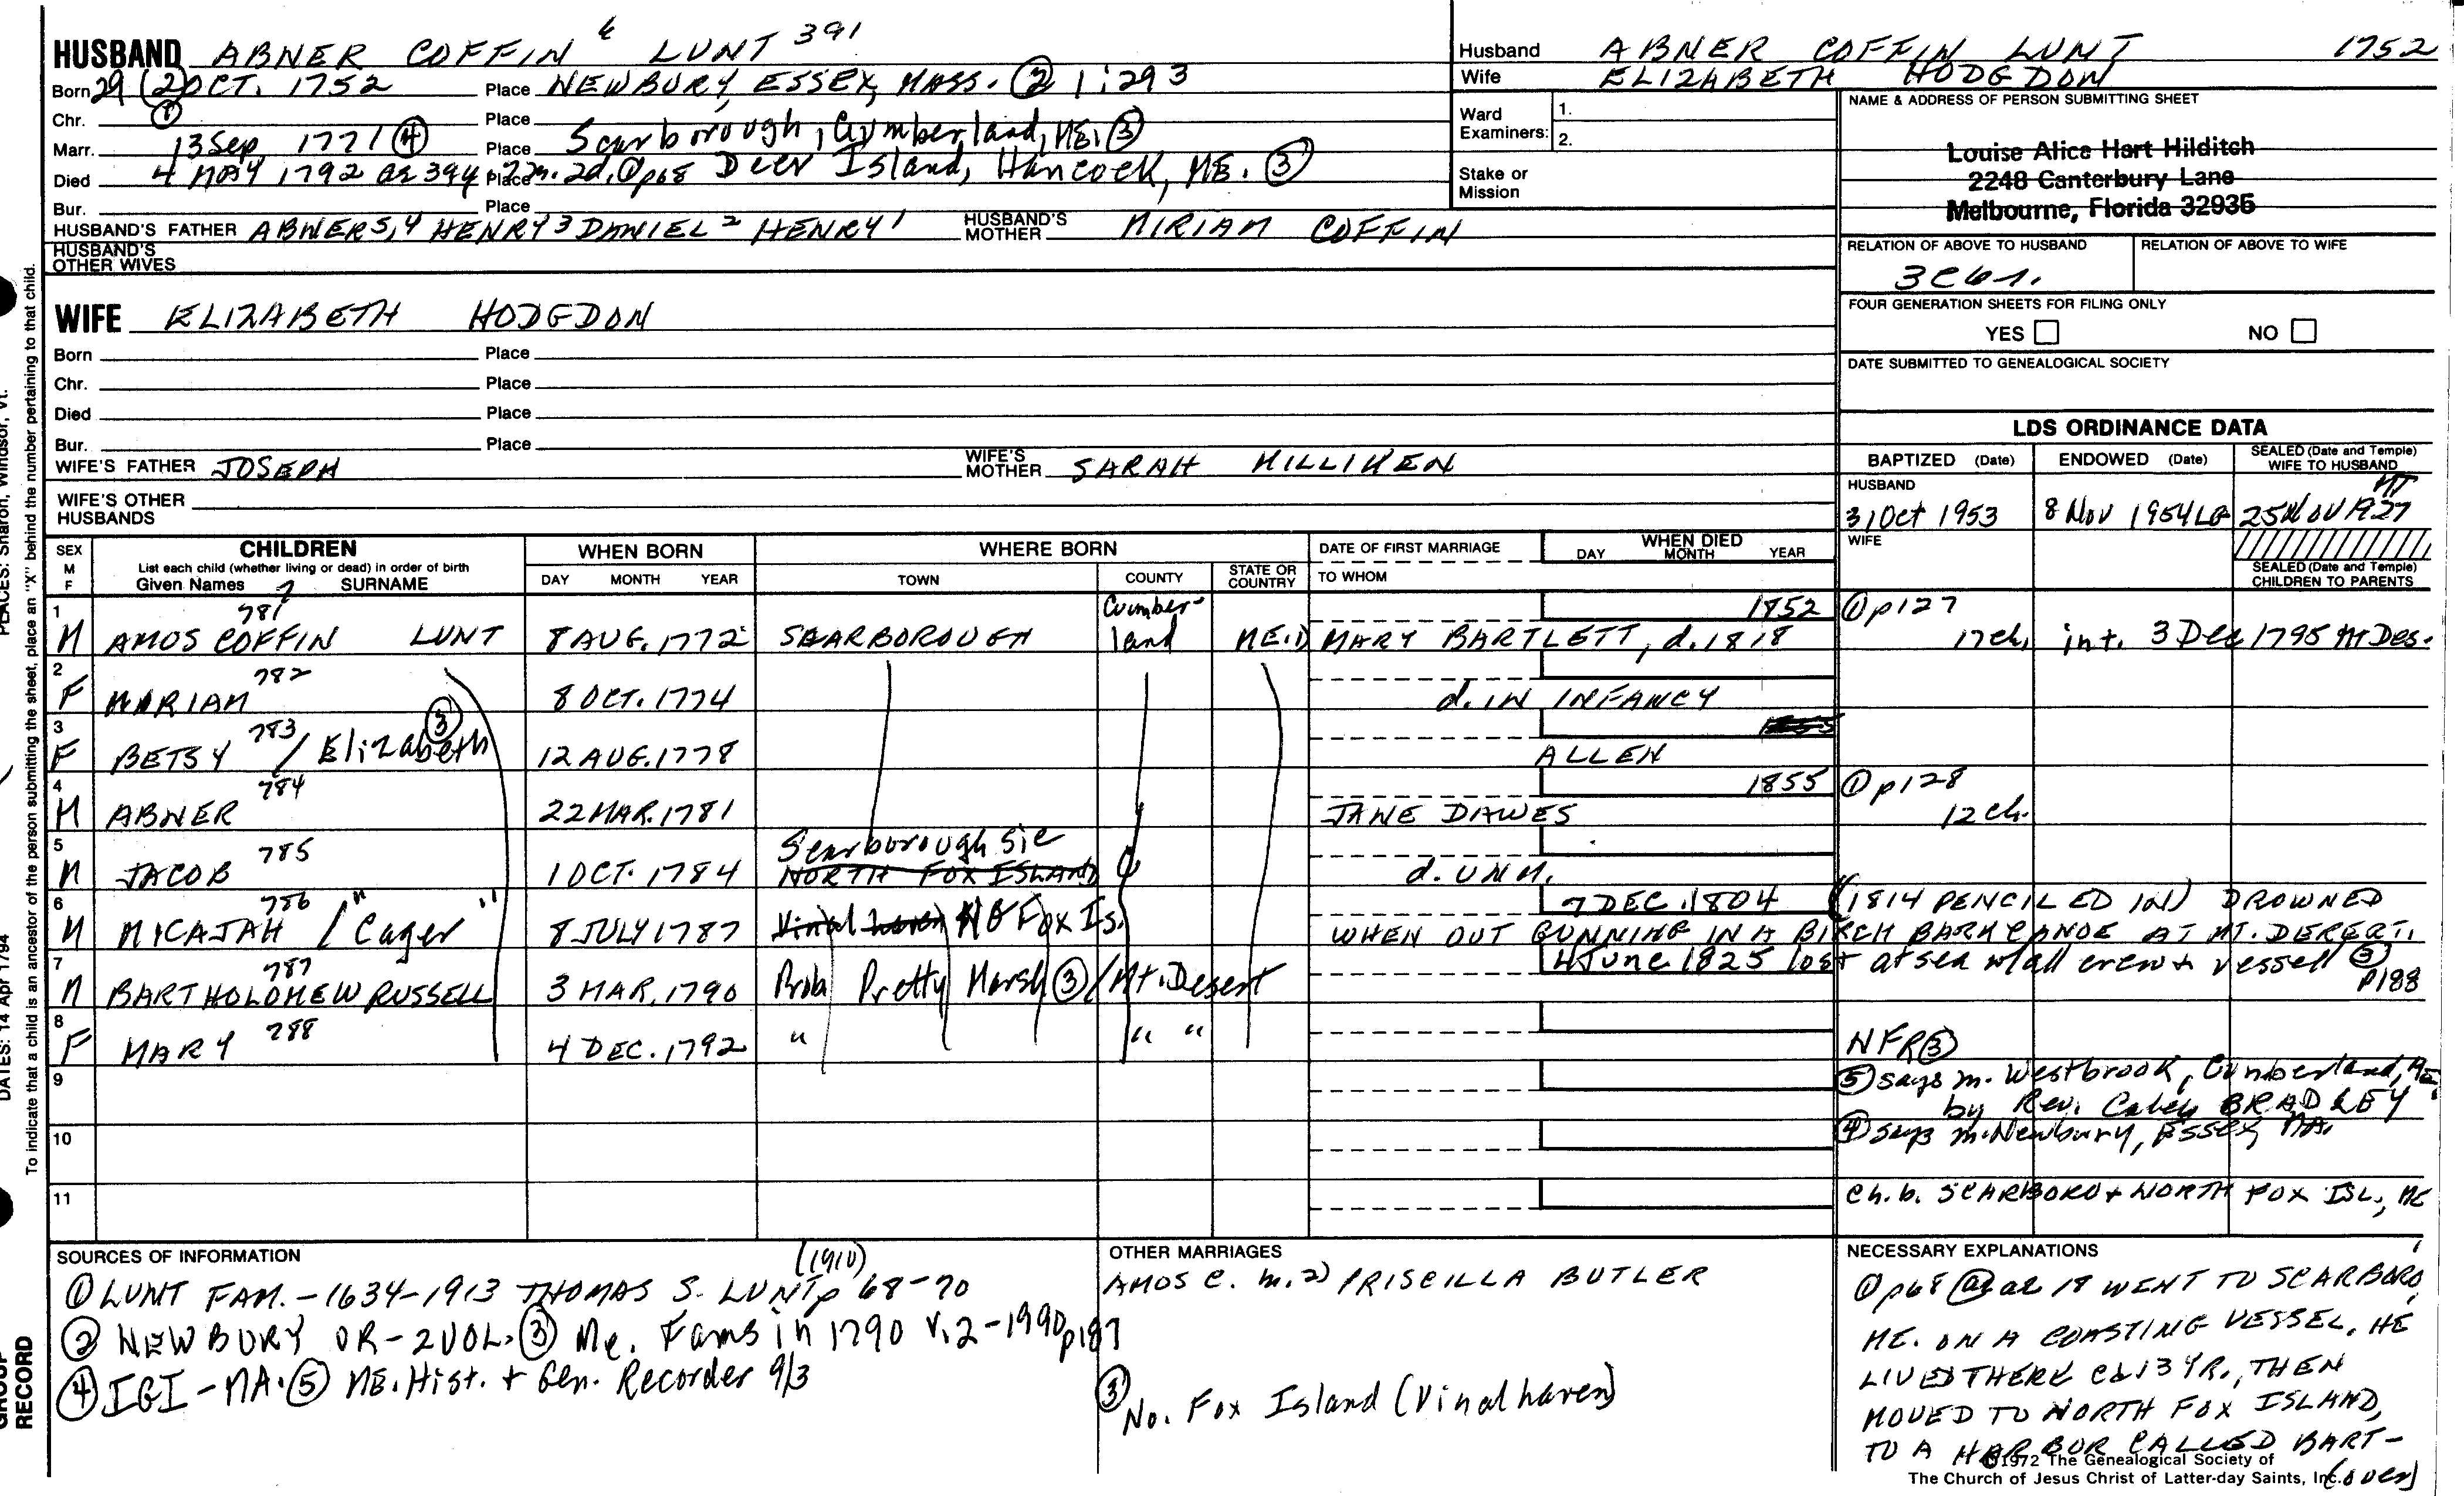 HUSBAND ABNER COFFIN 6 LUNT 391
Born 29 (2) OCT. 1752 Place NEWBURY, ESSEX, MASS. ② 1:293
Chr. ① Place
Marr. 13 Sep 1771 ④ Place Scarborough, Cumberland, ME. ③
Died 4 MAY 1792 ae 39y 7m. 2d. ① p68 Place Deer Island, Hancock, ME. ③
Bur. Place
HUSBAND'S FATHER ABNER 5, 4 HENRY 3 DANIEL 2 HENRY 1 HUSBAND'S MOTHER MIRIAM COFFIN
HUSBAND'S OTHER WIVES
WIFE ELIZABETH HODGDON
Born Place
Chr. Place
Died Place
Bur. Place
WIFE'S FATHER JOSEPH WIFE'S MOTHER SARAH MILLIKEN
WIFE'S OTHER HUSBANDS
Husband ABNER COFFIN LUNT 1752
Wife ELIZABETH HODGDON
Ward Examiners: 1.
2.
Stake or Mission
NAME & ADDRESS OF PERSON SUBMITTING SHEET
Louise Alice Hart Hilditch
2248 Canterbury Lane
Melbourne, Florida 32935
RELATION OF ABOVE TO HUSBAND RELATION OF ABOVE TO WIFE
3C6r.
FOUR GENERATION SHEETS FOR FILING ONLY
YES NO
DATE SUBMITTED TO GENEALOGICAL SOCIETY
LDS ORDINANCE DATA
BAPTIZED (Date) ENDOWED (Date) SEALED (Date and Temple) WIFE TO HUSBAND
HUSBAND
31 Oct 1953 8 Nov 1954 LG 25 Nov 1927
WIFE
SEALED (Date and Temple) CHILDREN TO PARENTS
SEX M F CHILDREN WHEN BORN WHERE BORN DATE OF FIRST MARRIAGE WHEN DIED
List each child (whether living or dead) in order of birth DAY MONTH YEAR
Given Names 7 SURNAME DAY MONTH YEAR TOWN COUNTY STATE OR COUNTRY TO WHOM
1 781 1852 ① p127
M AMOS COFFIN LUNT 8 AUG. 1772 SCARBOROUGH Cumberland ME. 1) MARY BARTLETT, d. 1818 17ch, int. 3 Dec 1795 Mt Des.
2 782
F MIRIAM 8 OCT. 1774 d. IN INFANCY
3 783 ③
F BETSY / Elizabeth 12 AUG. 1778 ALLEN
4 784 1855 ① p128
M ABNER 22 MAR. 1781 JANE DAWES 12 ch.
5 785 Scarborough sic
M JACOB 1 OCT. 1784 NORTH FOX ISLAND d. UNM.
6 786 7 DEC. 1804 (1814 PENCILED IN) DROWNED
M MICAJAH / "Cager" 8 JULY 1787 Vinal haven NO Fox Is. WHEN OUT GUNNING IN A BIRCH BARK CANOE AT MT. DERERT.
7 787 4 June 1825 lost at sea w/all crew + vessell ③ p188
M BARTHOLOMEW RUSSELL 3 MAR. 1790 Prob Pretty Marsh ③ / Mt. Desert
8 788
F MARY 4 DEC. 1792 " " " NFR ③
9 ⑤ says m. Westbrook, Cumberland, ME
by Rev. Caleb BRADLEY
10 ④ says m. Newbury, Essex, MA.
11 Ch. b. SCARBORO + NORTH FOX ISL., ME
SOURCES OF INFORMATION
① LUNT FAM. - 1634-1913 THOMAS S. LUNT (1910) p 68-70
② NEWBURY VR - 2 VOL. ③ Me. Fams in 1790 v. 2-1990 p187
④ IGI - MA. ⑤ ME. Hist. + Gen. Recorder 9/3
OTHER MARRIAGES
AMOS C. m. 2) PRISCILLA BUTLER
③ No. Fox Island (Vinalhaven)
NECESSARY EXPLANATIONS
① p68 @ ae 18 WENT TO SCARBORO,
ME. ON A COASTING VESSEL, HE
LIVED THERE ca 13 YR., THEN
MOVED TO NORTH FOX ISLAND,
TO A HARBOR CALLED BART-
(over)
©1972 The Genealogical Society of
The Church of Jesus Christ of Latter-day Saints, Inc.
PLACES: Sharon, Windsor, Vt.
DATES: 14 Apr 1794
To indicate that a child is an ancestor of the person submitting the sheet, place an "X" behind the number pertaining to that child.
GROUP RECORD